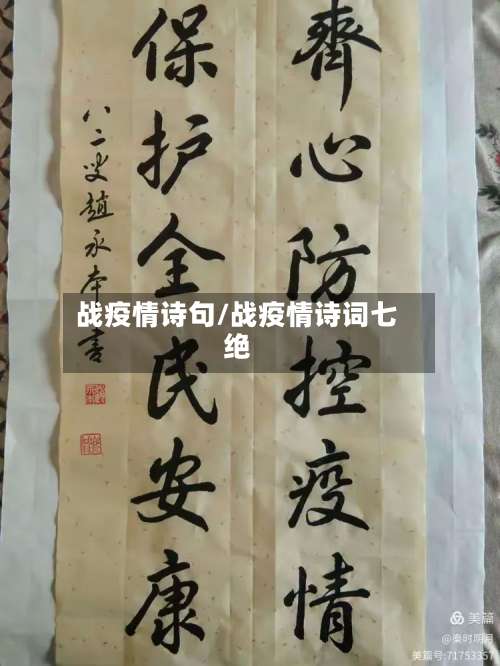 齊心防控疫情
保护全民安康
八二叟趙永本書
战疫情诗句/战疫情诗词七
绝
美篇
@秦时明月
美篇号:71753357